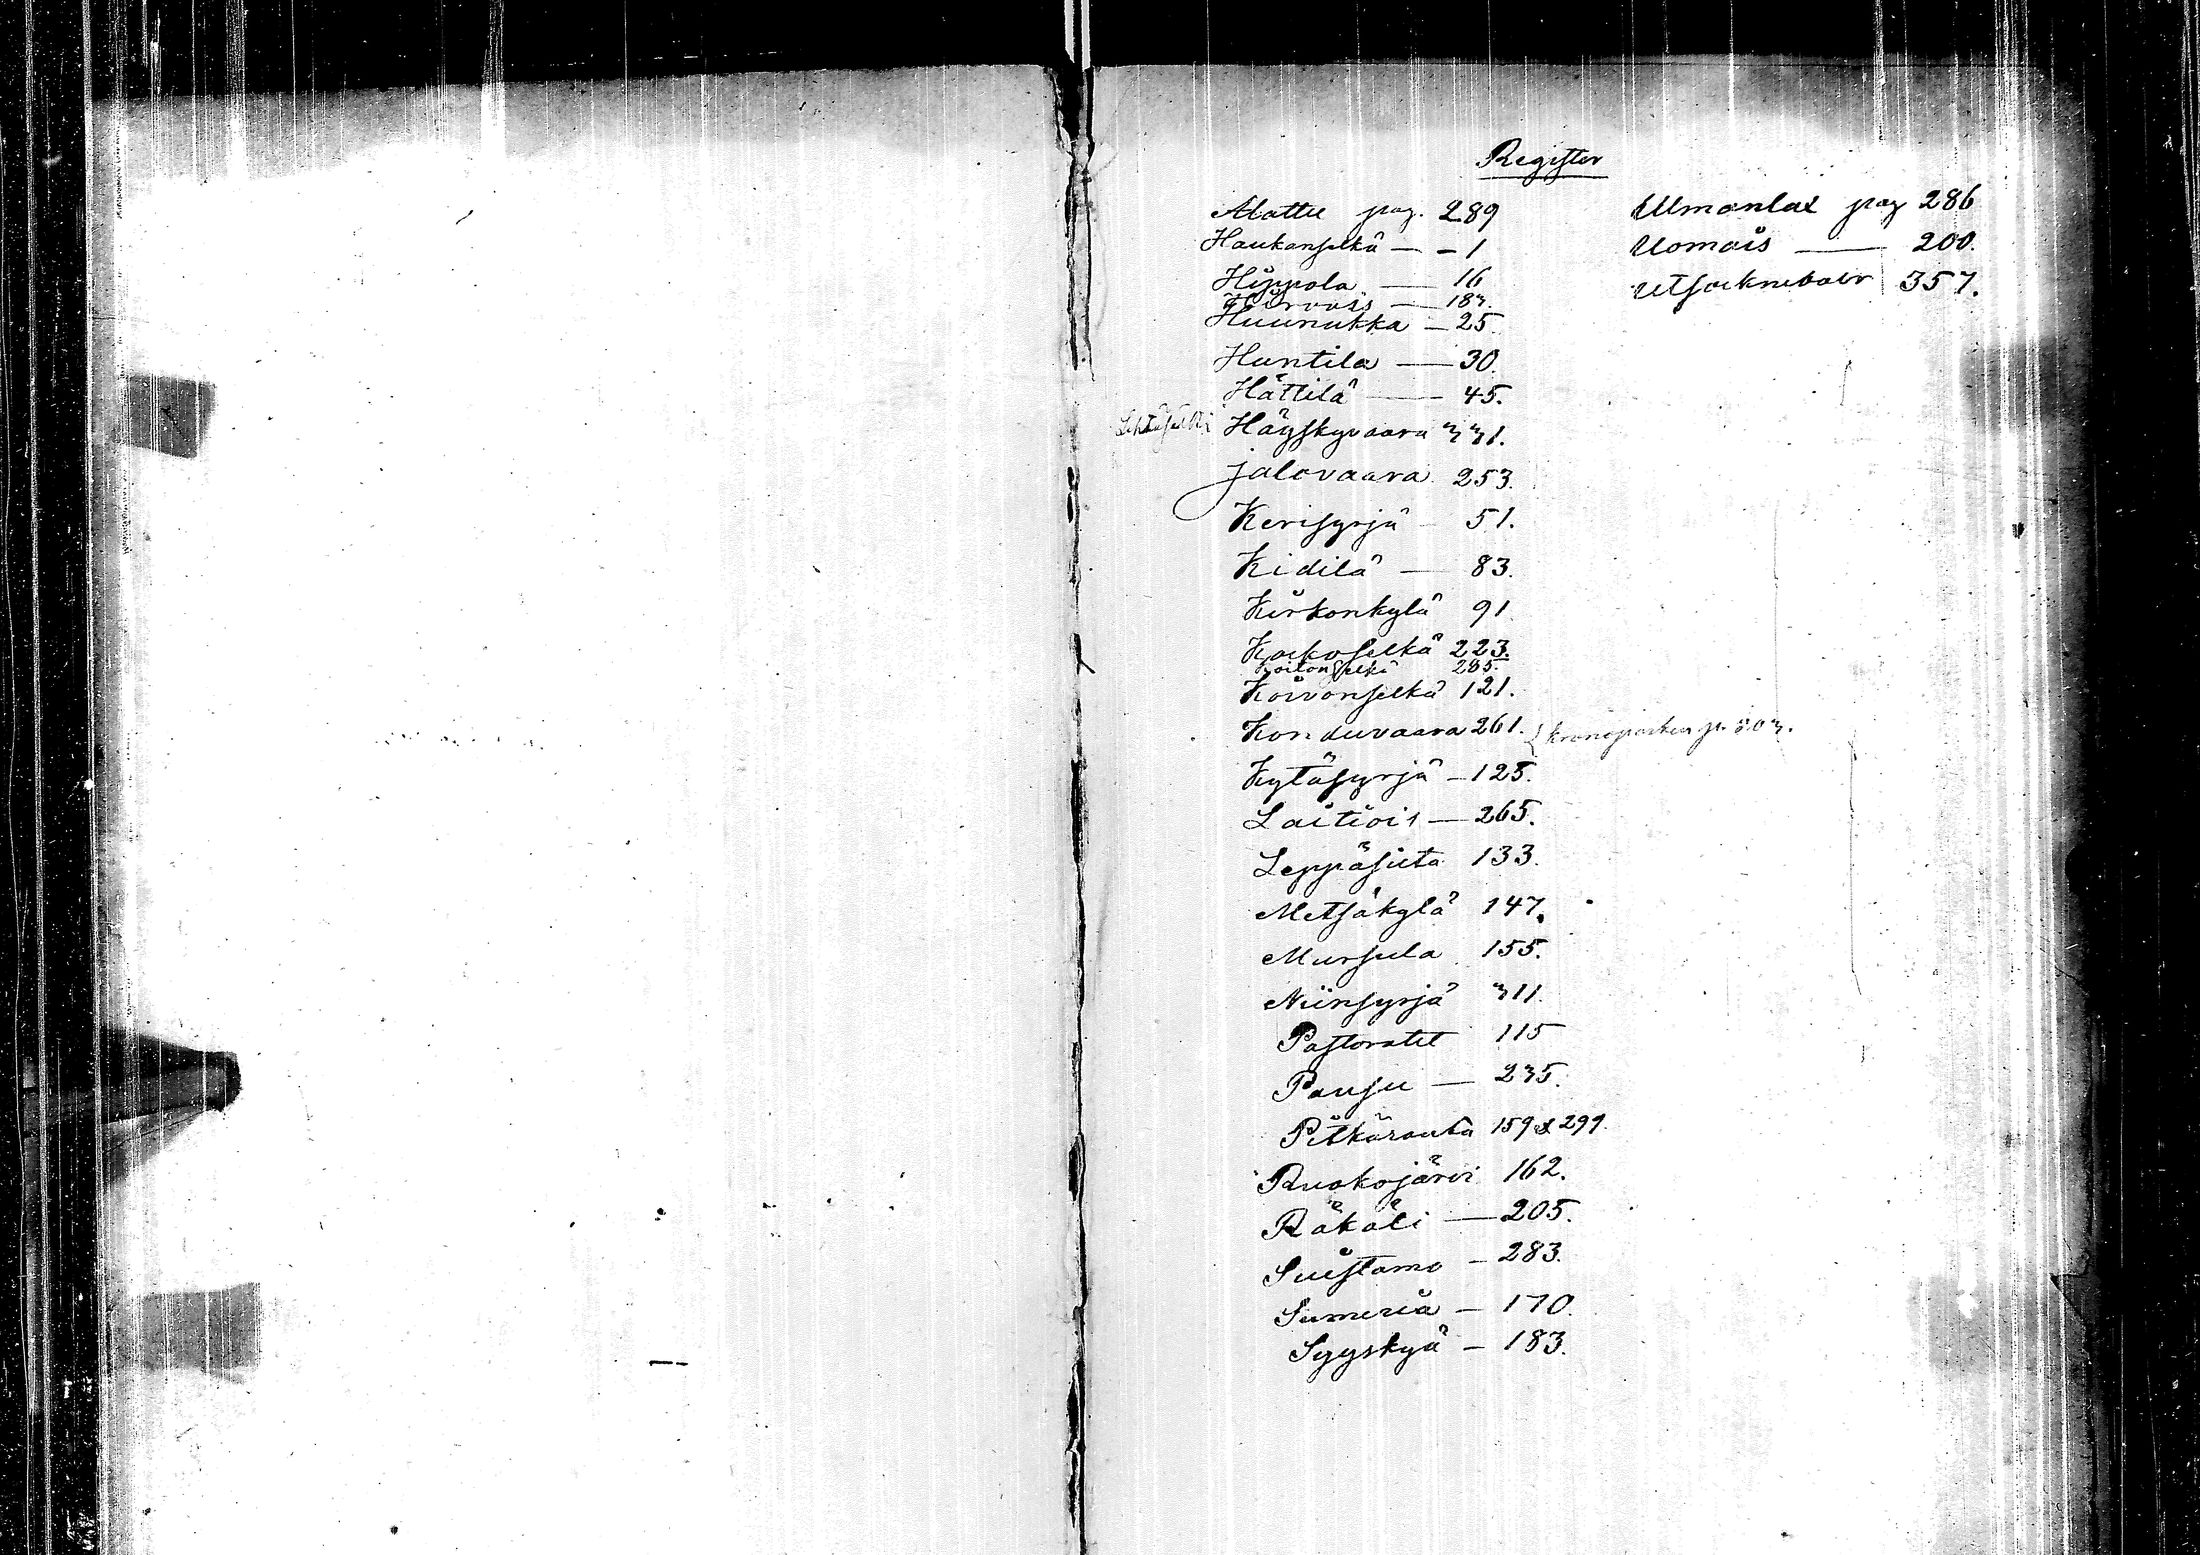 Register
Alattu pag. 289
Haukanselkä — – 1
Hippola — 16
Hirvois — 183.
Huunukka — 25
Huntila — 30.
Hättilä — 45.
Häyskyvaara 331.
Jalovaara 253.
Kerisyrjä — 51.
Kidilä — 83.
Kirkonkylä 91
Kokoselkä 223.
Koitonselkä 285.
Koivonselkä 121.
Konduvaara 261. { kronoparken p. 303.
Kytäsyrjä — 125.
Laitiois — 265.
Leppäsilta 133.
Metsäkylä 147.
Mursula 155.
Niinsyrjä 311.
Pastoratet 115
Pausu — 235.
Pitkäranta 159 & 299.
Ruokojärvi 162.
Räkäli — 205.
Suistamo — 283.
Sumeria — 170.
Syyskyä — 183.
Ulmanlax pag 286
Uomais — 200.
Utsocknebor 357.